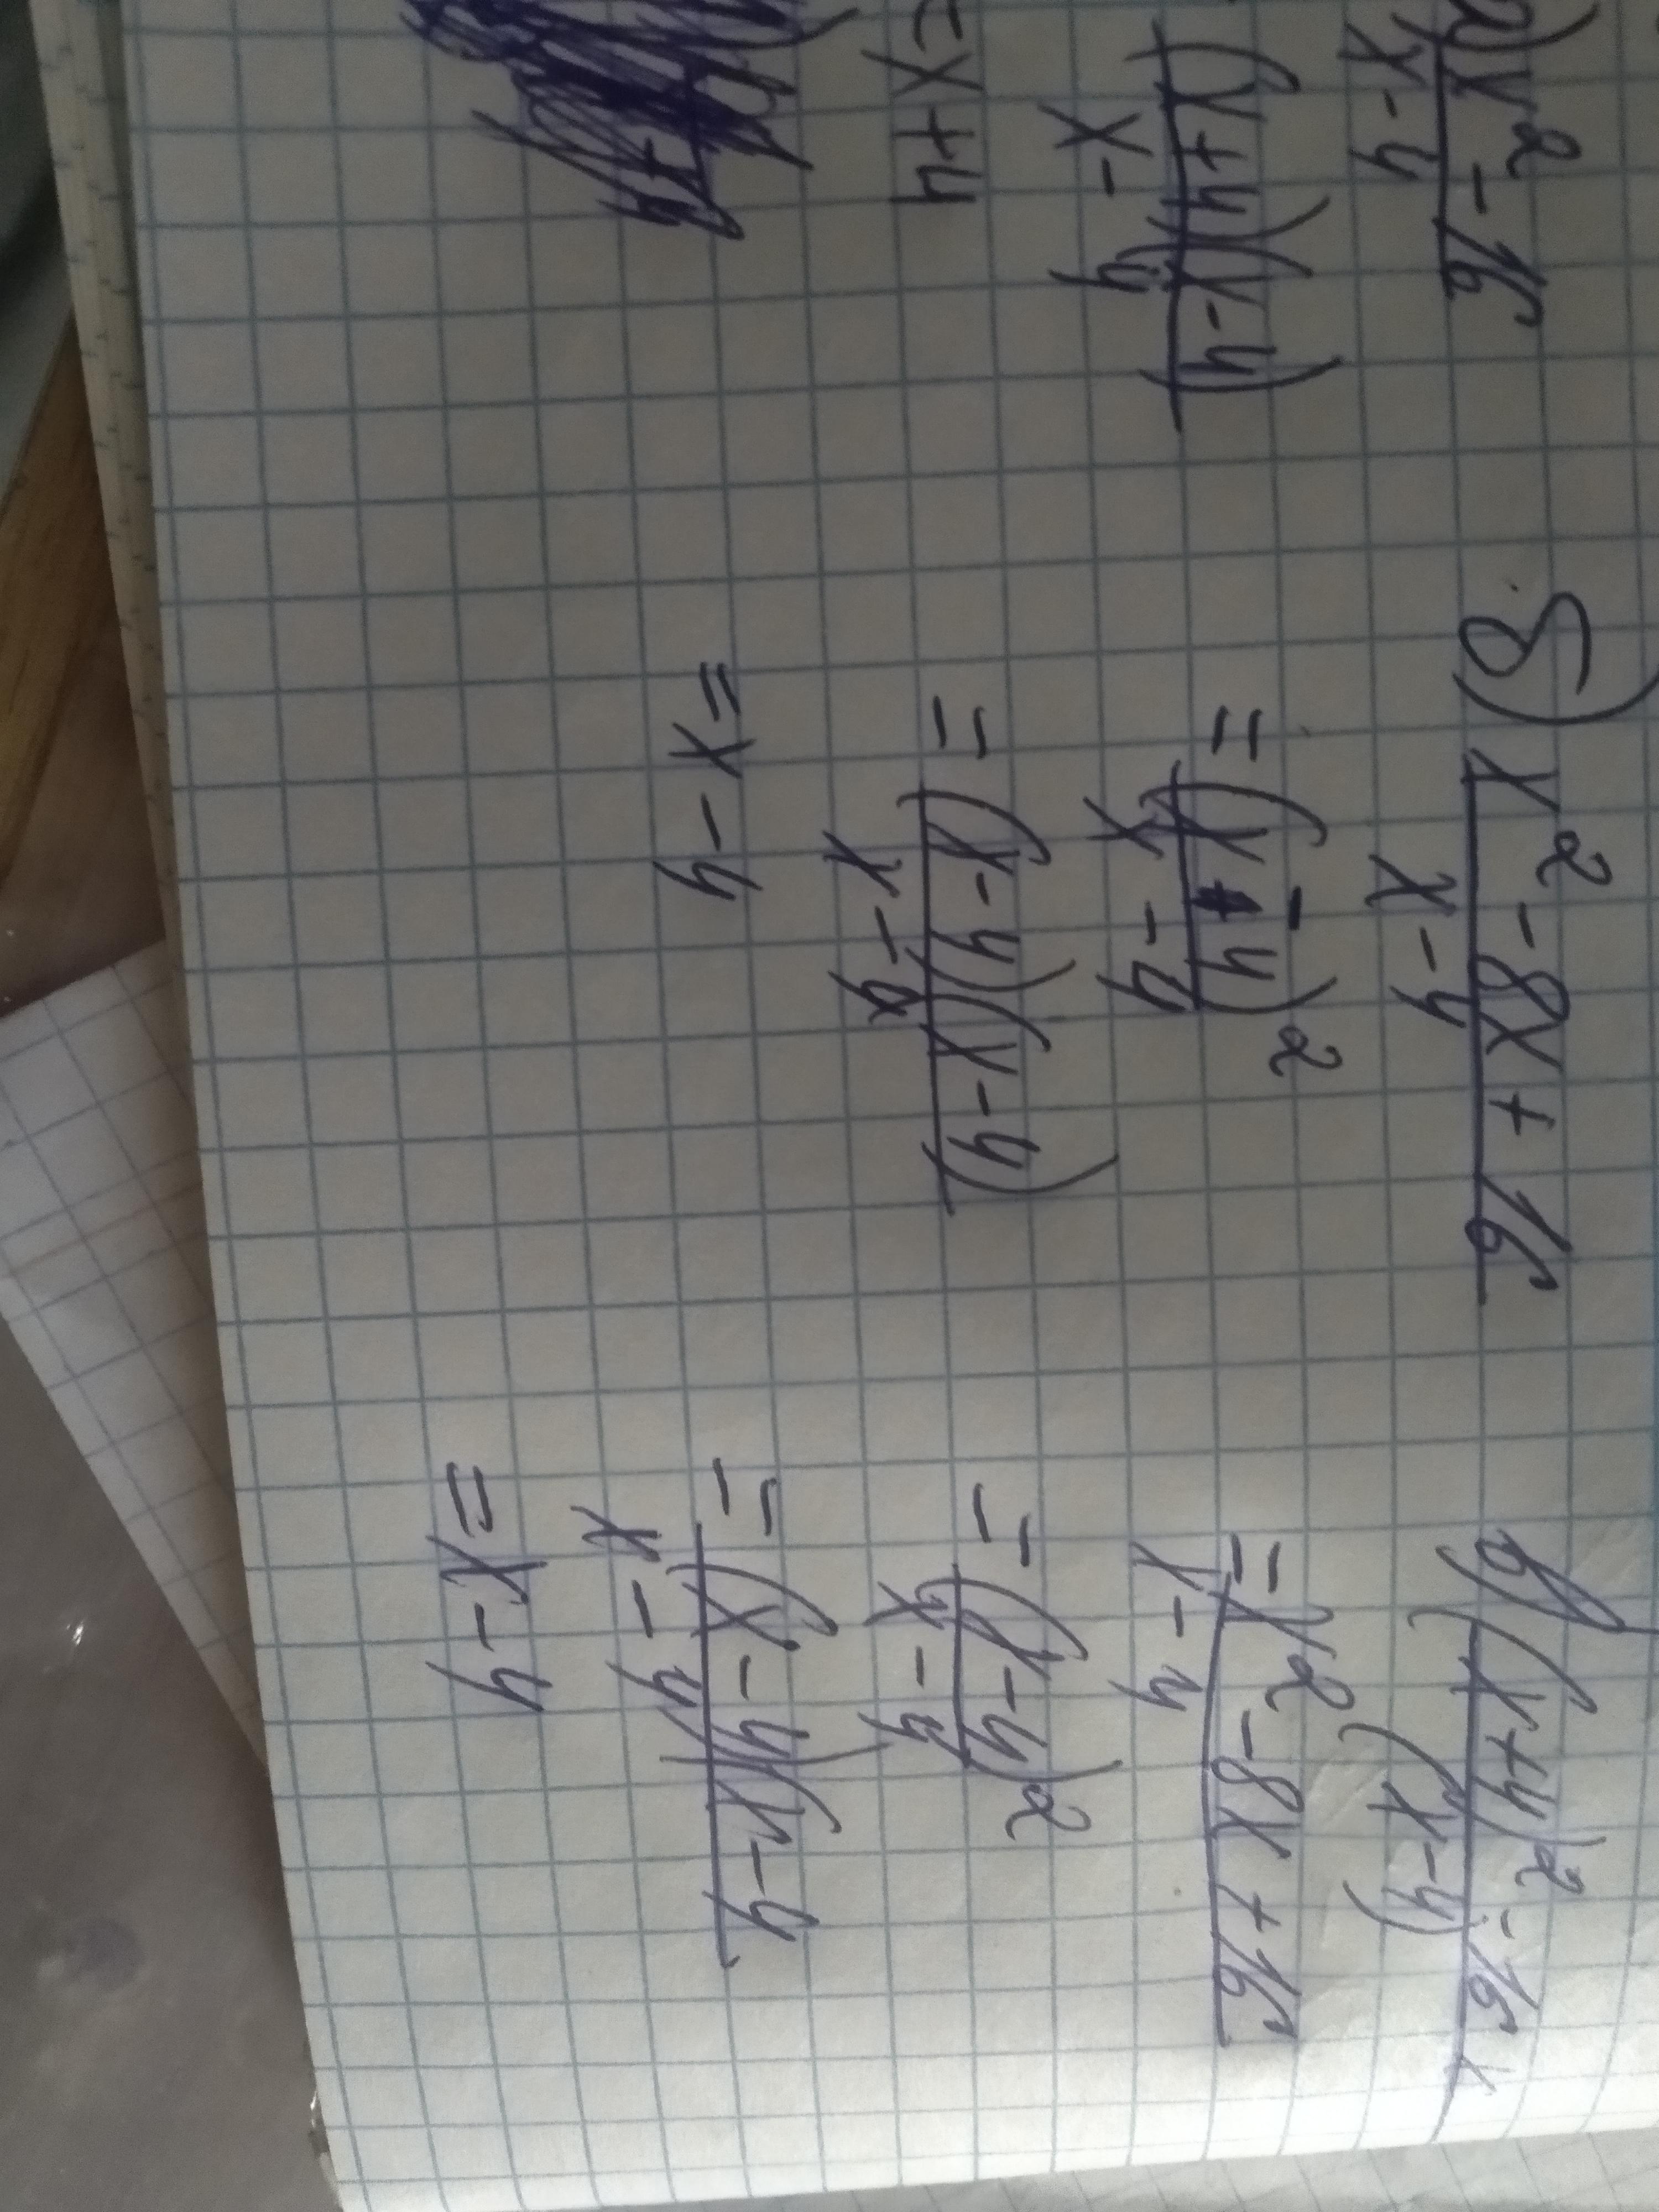 а) x² - 16
x - 4
(x + 4)(x - 4)
x - 4
= x + 4
б) x² - 8x + 16
x - 4
= (x - 4)²
x - 4
= (x - 4)(x - 4)
x - 4
= x - 4
в) (x + 4)² - 16x
(x - 4)
= x² - 8x + 16
x - 4
= (x - 4)²
x - 4
= (x - 4)(x - 4
x - 4
= x - 4